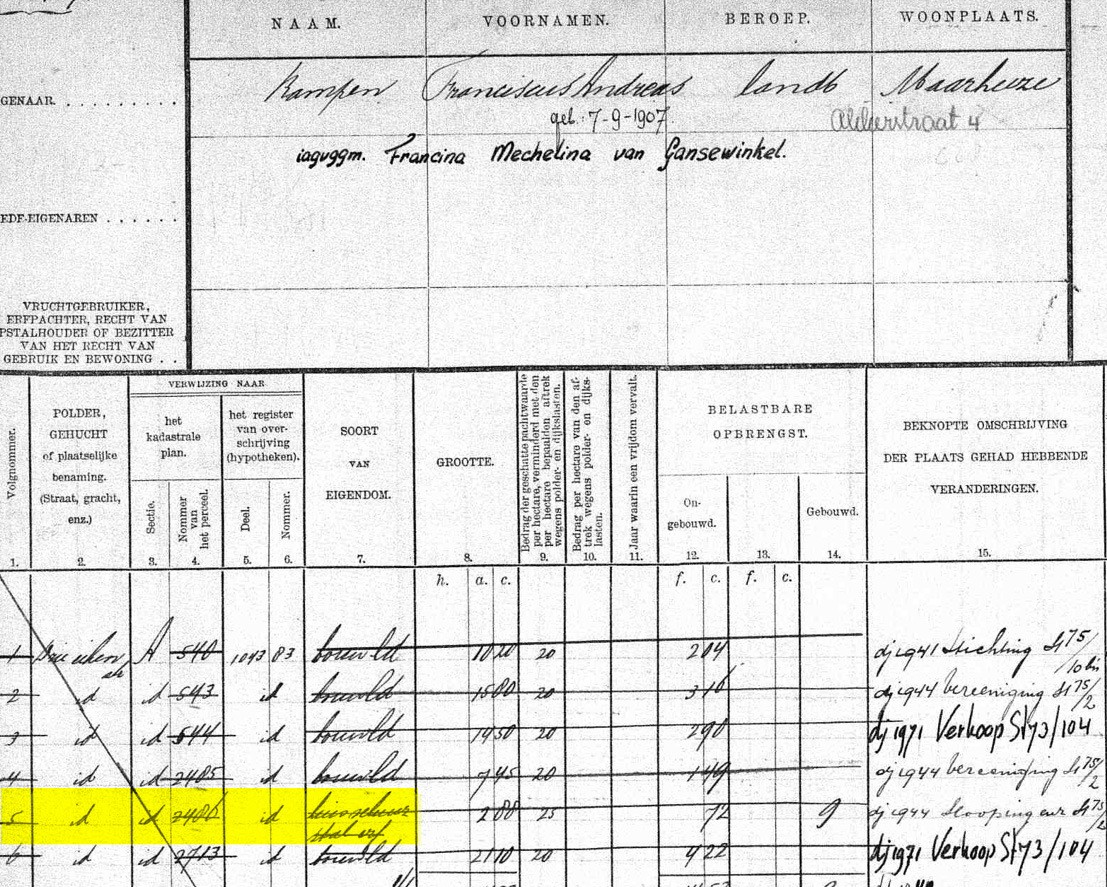 NAAM. VOORNAMEN. BEROEP. WOONPLAATS.
GENAAR. . . . . . . . . Kampen Franciscus Andreas landb Maarheeze
geb. 7-9-1907.
iagvggm. Francina Mechelina van Gansewinkel.
EDE-EIGENAREN . . . . . .
VRUCHTGEBRUIKER,
ERFPACHTER, RECHT VAN
PSTALHOUDER OF BEZITTER
VAN HET RECHT VAN
GEBRUIK EN BEWONING . .
Volgnommer.
1.
POLDER,
GEHUCHT
of plaatselijke
benaming.
(Straat, gracht,
enz.)
2.
VERWIJZING NAAR
het
kadastrale
plan.
Sectie.
3.
Nommer
van
het perceel.
4.
het register
van over-
schrijving
(hypotheken).
Deel.
5.
Nommer.
6.
SOORT
VAN
EIGENDOM.
7.
GROOTTE.
8.
Bedrag der geschatte pachtwaarde
per hectare, verminderd met den
per hectare bepaalden aftrek
wegens polder- en dijkslasten.
9.
Bedrag per hectare van den af-
trek wegens polder- en dijks-
lasten.
10.
Jaar waarin een vrijdom vervalt.
11.
BELASTBARE
OPBRENGST.
On-
gebouwd.
12.
13.
Gebouwd.
14.
BEKNOPTE OMSCHRIJVING
DER PLAATS GEHAD HEBBENDE
VERANDERINGEN.
15.
h. a. c. f. c. f. c.
1 A 540 1043 83 bouwld 10 20 20 2 04 dj 1941 Stichting St 75/10 bis
2 id id 543 id bouwld 15 80 20 3 16 dj 1944 vereeniging St 75/2
3 id id 544 id bouwld 14 50 20 2 90 dj 1971 Verkoop St 73/104
4 id id 2405 id bouwld 7 45 20 1 49 dj 1944 vereeniging St 75/2
5 id id 2406 id huis schuur 2 88 25 72 9 dj 1944 Slooping enz St 75/2
stal erf
6 id id 2413 id bouwld 21 10 20 4 22 dj 1971 Verkoop St 73/104